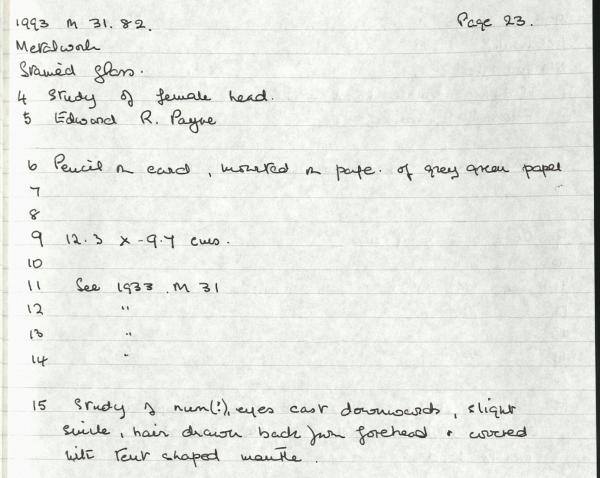 1993 M 31.82. Page 23.
Metalwork
Stained glass.
4 Study of female head.
5 Edward R. Payne
6 Pencil on card, mounted on page. of grey green paper
7
8
9 12.3 x 9.7 cms.
10
11 See 1933.M 31
12 "
13 "
14 "
15 Study of nun(?), eyes cast downwards, slight
smile, hair drawn back from forehead + covered
with tent shaped mantle.